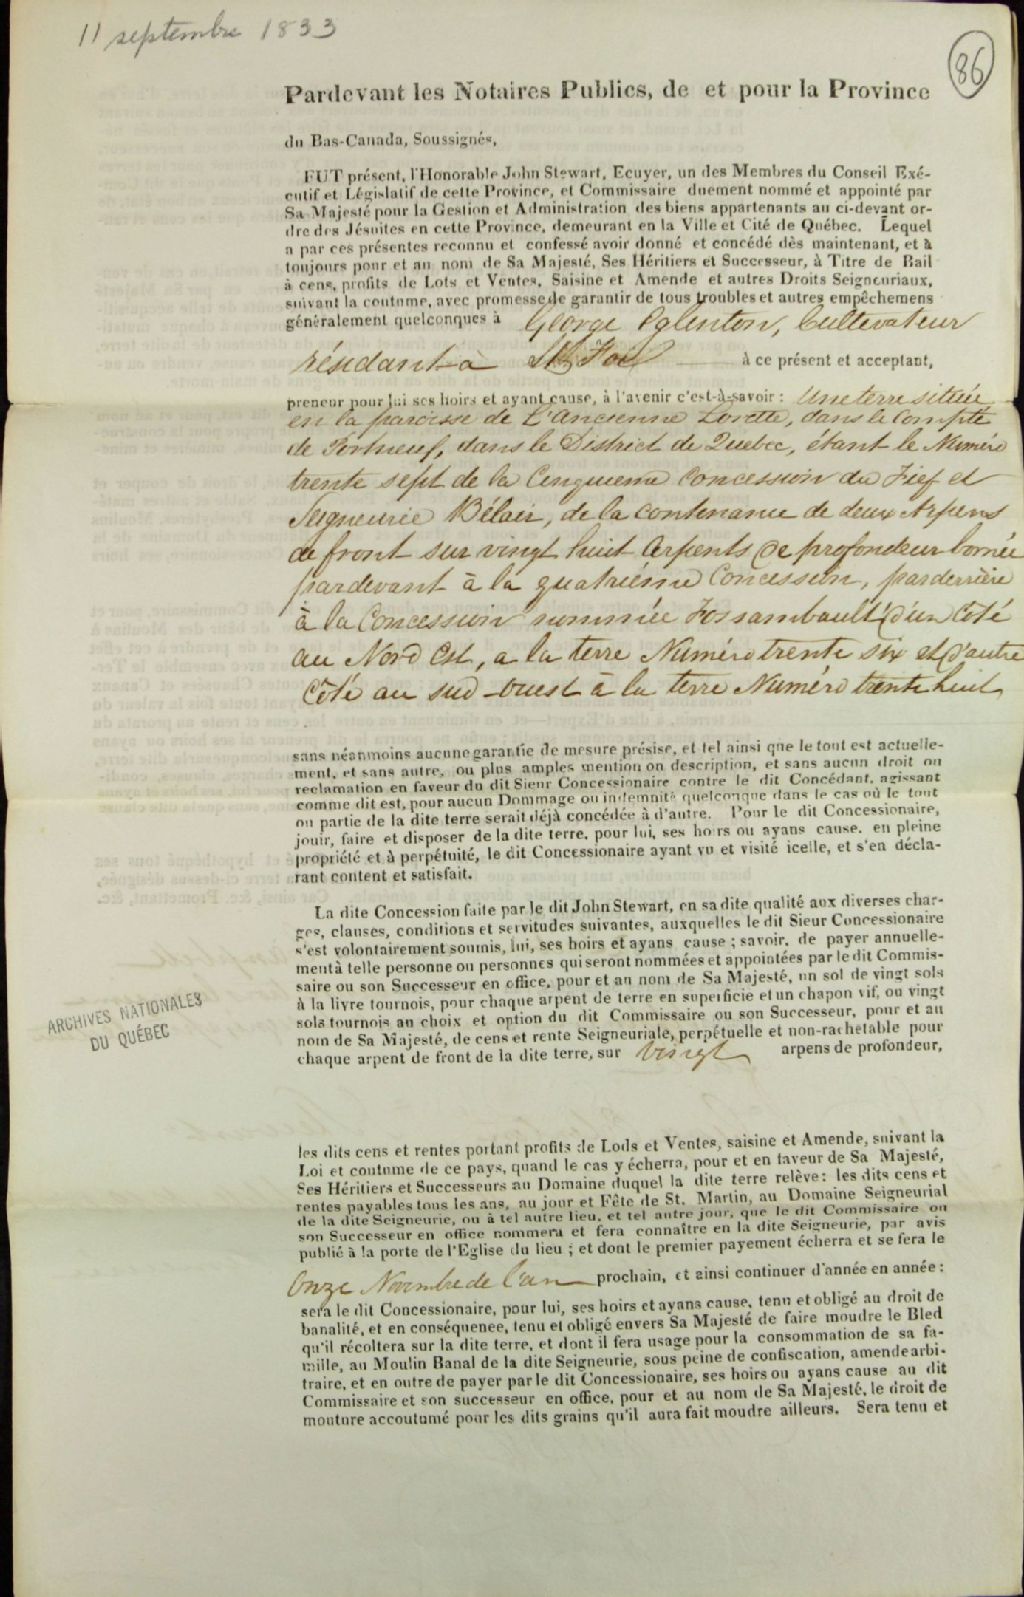 11 septembre 1833
86
Pardevant les Notaires Publics, de et pour la Province
du Bas-Canada, Soussignés,
FUT présent, l'Honorable John Stewart, Ecuyer, un des Membres du Conseil Exé-
cutif et Législatif de cette Province, et Commissaire duement nommé et appointé par
Sa Majesté pour la Gestion et Administration des biens appartenants au ci-devant or-
dre des Jésuites en cette Province, demeurant en la Ville et Cité de Québec. Lequel
a par ces présentes reconnu et confessé avoir donné et concédé dès maintenant, et à
toujours pour et au nom de Sa Majesté, Ses Héritiers et Successeur, à Titre de Bail
à cens, profits de Lots et Ventes, Saisine et Amende et autres Droits Seigneuriaux,
suivant la coutume, avec promesse de garantir de tous troubles et autres empêchemens
généralement quelconques à George Eglinton, Cultivateur
résidant à Ste Foi à ce présent et acceptant,
preneur pour lui ses hoirs et ayant cause, à l'avenir c'est-à-savoir : Une terre située
en la paroisse de L'Ancienne Lorette, dans le Compté
de Portneuf, dans le District de Quebec, étant le Numéro
trente sept de la Cinquieme Concession du Fief et
Seigneurie Bélair, de la contenance de deux Arpens
de front sur vingt huit arpents de profondeur bornée
pardevant à la quatriéme Concession, parderrière
à la Concession nommée Fossambault d'un Côté
au Nord Est, a la terre Numéro trente six et d'autre
Côté au sud-ouest à la terre Numéro trente huit
sans néanmoins aucune garantie de mesure présise, et tel ainsi que le tout est actuelle-
ment, et sans autre, ou plus amples mention on description, et sans aucun droit ou
reclamation en faveur du dit Sieur Concessionaire contre le dit Concédant, agissant
comme dit est, pour aucun Dommage ou indemnité quelconque dans le cas où le tout
ou partie de la dite terre serait déjà concédée à d'autre. Pour le dit Concessionaire,
jouir, faire et disposer de la dite terre, pour lui, ses hoirs ou ayans cause, en pleine
propriété et à perpétuité, le dit Concessionaire ayant vu et visité icelle, et s'en décla-
rant content et satisfait.
La dite Concession faite par le dit John Stewart, en sa dite qualité aux diverses char-
ges, clauses, conditions et servitudes suivantes, auxquelles le dit Sieur Concessionaire
s'est volontairement soumis, lui, ses hoirs et ayans cause ; savoir, de payer annuelle-
ment à telle personne ou personnes qui seront nommées et appointées par le dit Commis-
saire ou son Successeur en office, pour et au nom de Sa Majesté, un sol de vingt sols
à la livre tournois, pour chaque arpent de terre en superficie et un chapon vif, ou vingt
sols tournois au choix et option du dit Commissaire ou son Successeur, pour et au
nom de Sa Majesté, de cens et rente Seigneuriale, perpétuelle et non-rachetable pour
chaque arpent de front de la dite terre, sur vingt arpens de profondeur,
ARCHIVES NATIONALES
DU QUÉBEC
les dits cens et rentes portant profits de Lods et Ventes, saisine et Amende, suivant la
Loi et coutume de ce pays, quand le cas y écherra, pour et en faveur de Sa Majesté,
Ses Héritiers et Successeurs au Domaine duquel la dite terre relève: les dits cens et
rentes payables tous les ans, au jour et Fête de St. Martin, au Domaine Seigneurial
de la dite Seigneurie, ou à tel autre lieu, et tel autre jour, que le dit Commissaire ou
son Successeur en office nommera et fera connaître en la dite Seigneurie, par avis
publié à la porte de l'Eglise du lieu ; et dont le premier payement écherra et se fera le
Onze Novembre de l'an prochain, et ainsi continuer d'année en année :
sera le dit Concessionaire, pour lui, ses hoirs et ayans cause, tenu et obligé au droit de
banalité, et en conséquence, tenu et obligé envers Sa Majesté de faire moudre le Bled
qu'il récoltera sur la dite terre, et dont il fera usage pour la consommation de sa fa-
mille, au Moulin Banal de la dite Seigneurie, sous peine de confiscation, amende arbi-
traire, et en outre de payer par le dit Concessionaire, ses hoirs ou ayans cause au dit
Commissaire et son successeur en office, pour et au nom de Sa Majesté, le droit de
mouture accoutumé pour les dits grains qu'il aura fait moudre ailleurs. Sera tenu et